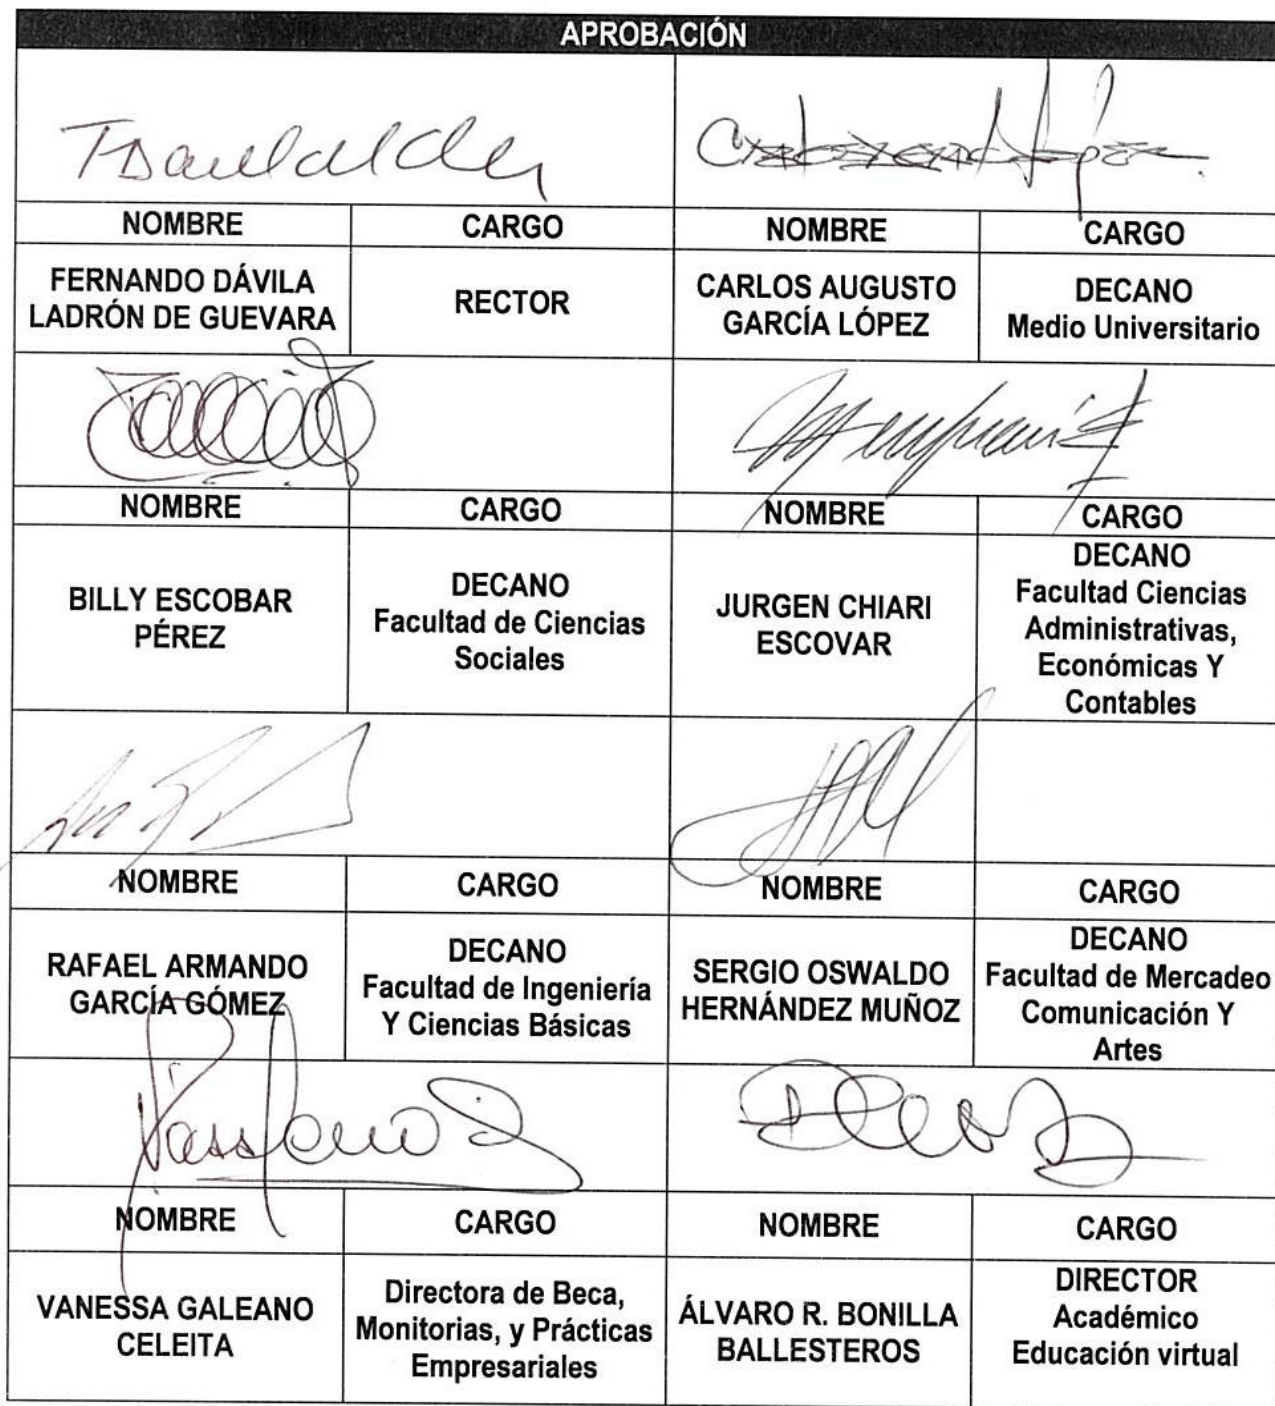 APROBACIÓN
NOMBRE CARGO NOMBRE CARGO
FERNANDO DÁVILA
LADRÓN DE GUEVARA
RECTOR
CARLOS AUGUSTO
GARCÍA LÓPEZ
DECANO
Medio Universitario
NOMBRE CARGO NOMBRE CARGO
BILLY ESCOBAR
PÉREZ
DECANO
Facultad de Ciencias
Sociales
JURGEN CHIARI
ESCOVAR
DECANO
Facultad Ciencias
Administrativas,
Económicas Y
Contables
NOMBRE CARGO NOMBRE CARGO
RAFAEL ARMANDO
GARCÍA GÓMEZ
DECANO
Facultad de Ingeniería
Y Ciencias Básicas
SERGIO OSWALDO
HERNÁNDEZ MUÑOZ
DECANO
Facultad de Mercadeo
Comunicación Y
Artes
NOMBRE CARGO NOMBRE CARGO
VANESSA GALEANO
CELEITA
Directora de Beca,
Monitorias, y Prácticas
Empresariales
ÁLVARO R. BONILLA
BALLESTEROS
DIRECTOR
Académico
Educación virtual